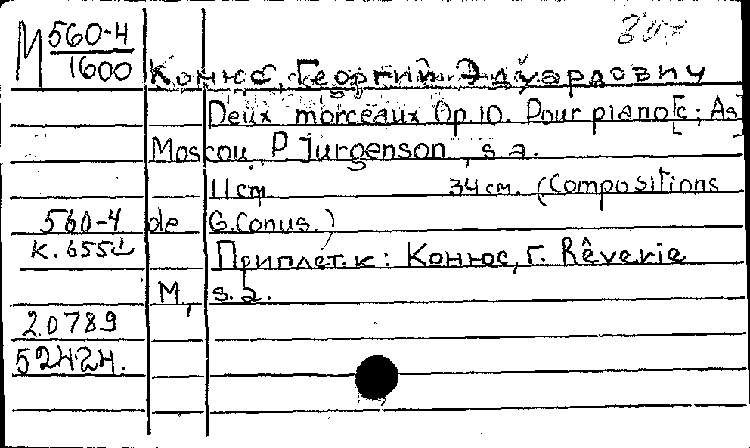 М 560-4
1600
Конюс, Георгий Эдуардович
Deux morceaux Op. 10. Pour piano [c; As]
Moscou, P. Jurgenson, s. a.
11 cm 34 см. (Compositions
560-4 de G. Conus.)
К. 655
Приплет. к: Конюс, Г. Rêverie
М, s. a.
20789
52424.